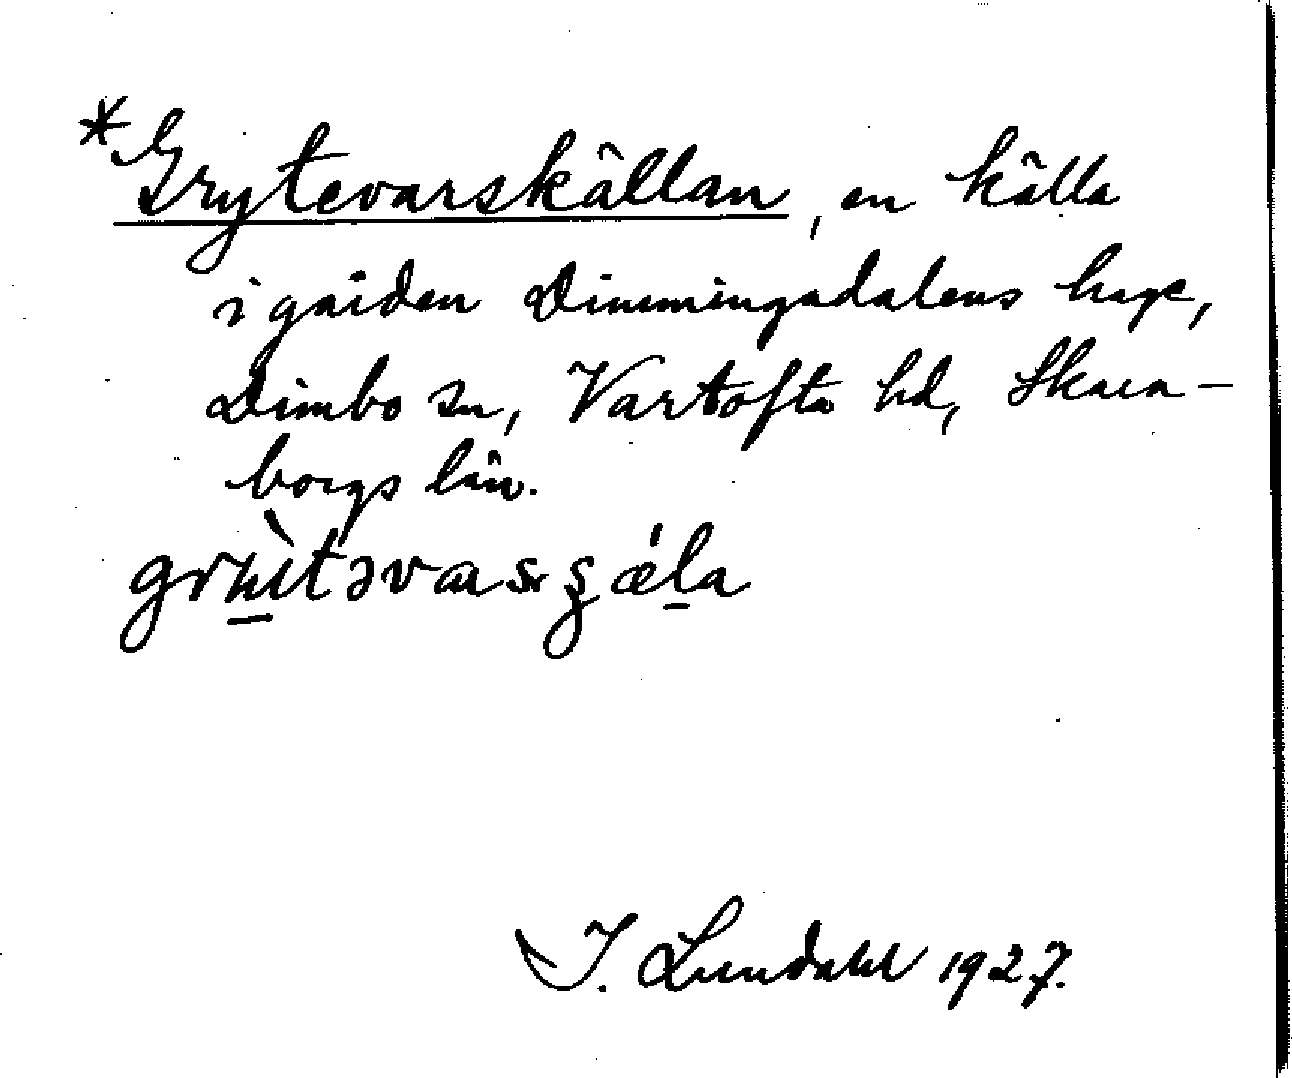 *Grytevarskällan, en källa
i gården Dimmingadalens hage,
Dimbo sn, Vartofta hd, Skara-
borgs län.
I. Lundahl 1927.